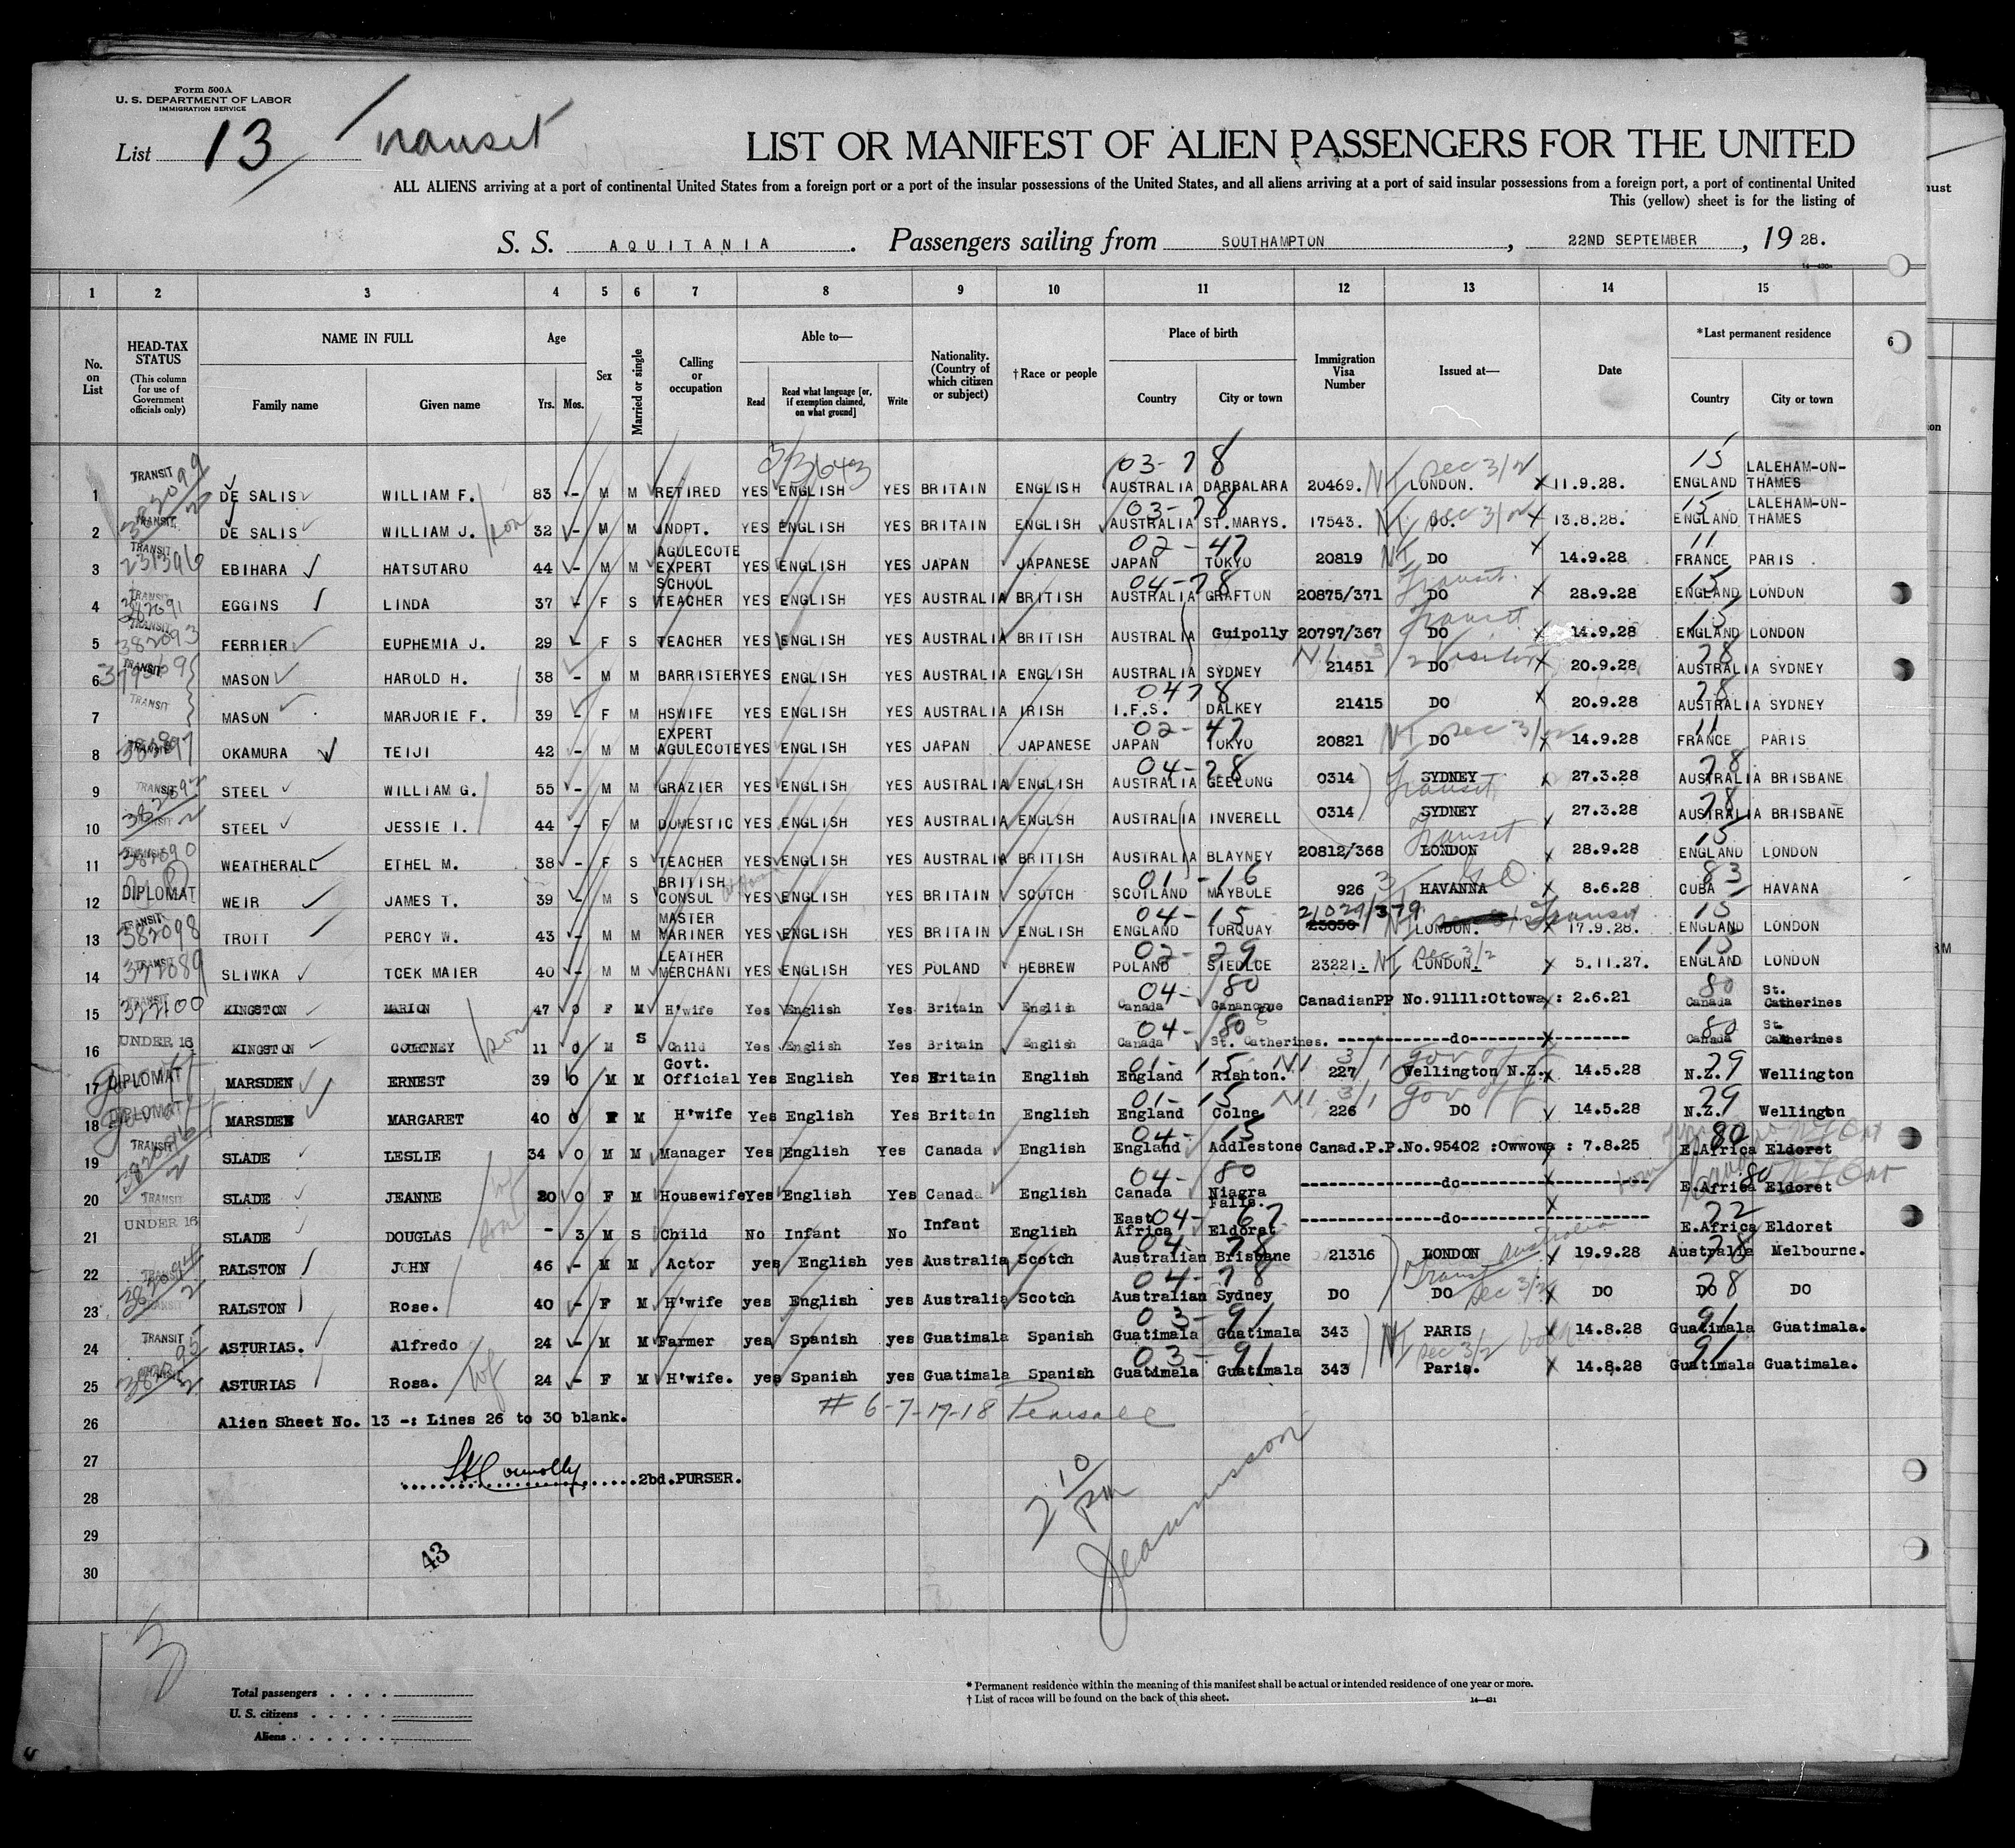 Form 500A
U. S. DEPARTMENT OF LABOR
IMMIGRATION SERVICE
List 13 Transit
LIST OR MANIFEST OF ALIEN PASSENGERS FOR THE UNITED
ALL ALIENS arriving at a port of continental United States from a foreign port or a port of the insular possessions of the United States, and all aliens arriving at a port of said insular possessions from a foreign port, a port of continental United
This (yellow) sheet is for the listing of
S. S. AQUITANIA. Passengers sailing from SOUTHAMPTON, 22ND SEPTEMBER, 19 28.
1 2 3 4 5 6 7 8 9 10 11 12 13 14 15
No. on List HEAD-TAX STATUS (This column for use of Government officials only) NAME IN FULL Family name Given name Age Yrs. Mos. Sex Married or single Calling or occupation Able to— Read Read what language [or, if exemption claimed, on what ground] Write Nationality. (Country of which citizen or subject) †Race or people Place of birth Country City or town Immigration Visa Number Issued at— Date *Last permanent residence Country City or town
1 TRANSIT DE SALIS WILLIAM F. 83 - M M RETIRED YES ENGLISH YES BRITAIN ENGLISH AUSTRALIA DARBALARA 03-78 20469. NI LONDON. Sec 3/2 11.9.28. 15 ENGLAND LALEHAM-ON-THAMES
2 TRANSIT DE SALIS WILLIAM J. son 32 - M M INDPT. YES ENGLISH YES BRITAIN ENGLISH AUSTRALIA ST.MARYS. 03-78 17543. NI DO. Sec 3/2 13.8.28. 15 ENGLAND LALEHAM-ON-THAMES
3 TRANSIT EBIHARA HATSUTARO 44 - M M AGULECOTE EXPERT YES ENGLISH YES JAPAN JAPANESE JAPAN TOKYO 02-47 20819 NI DO 14.9.28 11 FRANCE PARIS.
4 TRANSIT EGGINS LINDA 37 - F S SCHOOL TEACHER YES ENGLISH YES AUSTRALIA BRITISH AUSTRALIA GRAFTON 04-78 20875/371 Transit DO 28.9.28 15 ENGLAND LONDON
5 TRANSIT 382093 FERRIER EUPHEMIA J. 29 - F S TEACHER YES ENGLISH YES AUSTRALIA BRITISH AUSTRALIA Guipolly 20797/367 Transit DO 14.9.28 15 ENGLAND LONDON
6 TRANSIT MASON HAROLD H. 38 - M M BARRISTER YES ENGLISH YES AUSTRALIA ENGLISH AUSTRALIA SYDNEY 21451 DO 20.9.28 78 AUSTRALIA SYDNEY
7 TRANSIT MASON MARJORIE F. 39 - F M HSWIFE YES ENGLISH YES AUSTRALIA IRISH I.F.S. DALKEY 0478 21415 DO 20.9.28 78 AUSTRALIA SYDNEY
8 TRANSIT OKAMURA TEIJI 42 - M M EXPERT AGULECOTE YES ENGLISH YES JAPAN JAPANESE JAPAN TOKYO 02-47 20821 NI DO Sec 3/2 14.9.28 11 FRANCE PARIS
9 TRANSIT STEEL WILLIAM G. 55 - M M GRAZIER YES ENGLISH YES AUSTRALIA ENGLISH AUSTRALIA GEELONG 04-78 0314 SYDNEY Transit 27.3.28 78 AUSTRALIA BRISBANE
10 TRANSIT STEEL JESSIE I. 44 - F M DOMESTIC YES ENGLISH YES AUSTRALIA ENGLSH AUSTRALIA INVERELL 0314 SYDNEY 27.3.28 78 AUSTRALIA BRISBANE
11 TRANSIT WEATHERALL ETHEL M. 38 - F S TEACHER YES ENGLISH YES AUSTRALIA BRITISH AUSTRALIA BLAYNEY 20812/368 Transit LONDON 28.9.28 15 ENGLAND LONDON
12 DIPLOMAT WEIR JAMES T. 39 - M S BRITISH CONSUL YES ENGLISH YES BRITAIN SCOTCH SCOTLAND MAYBOLE 01-16 926 HAVANNA 8.6.28 83 CUBA HAVANA
13 TRANSIT 382098 TROTT PERCY W. 43 - M M MASTER MARINER YES ENGLISH YES BRITAIN ENGLISH ENGLAND TORQUAY 04-15 21029/379 LONDON. Transit 17.9.28. 15 ENGLAND LONDON
14 TRANSIT SLIWKA TCEK MAIER 40 - M M LEATHER MERCHANT YES ENGLISH YES POLAND HEBREW POLAND SIEDLCE 02-29 23221. NI LONDON. Sec 3/2 5.11.27. 15 ENGLAND LONDON
15 TRANSIT KINGSTON MARION 47 0 F M H'wife Yes English Yes Britain English Canada Gananoque 04-80 CanadianPP No.91111:Ottowa : 2.6.21 80 Canada St. Catherines
16 UNDER 16 KINGSTON COURTNEY son 11 0 M S Child Yes English Yes Britain English Canada St. Catherines. 04-80 -----do----- 80 Canada St. Catherines
17 DIPLOMAT MARSDEN ERNEST 39 0 M M Govt. Official Yes English Yes Britain English England Rishton. 01-15 NI 3/1 227 Gov off Wellington N.Z. 14.5.28 79 N.Z. Wellington
18 DIPLOMAT MARSDEN MARGARET 40 0 F M H'wife Yes English Yes Britain English England Colne 01-15 NI 3/1 226 Gov off DO 14.5.28 79 N.Z. Wellington
19 TRANSIT SLADE LESLIE 34 0 M M Manager Yes English Yes Canada English England Addlestone 04-15 Canad.P.P.No.95402 :Owwowa : 7.8.25 80 E.Africa Eldoret
20 TRANSIT SLADE JEANNE wf 20 0 F M Housewife Yes English Yes Canada English Canada Niagra Falls. 04-80 -----do----- 80 E.Africa Eldoret
21 UNDER 16 SLADE DOUGLAS son - 3 M S Child No Infant No Infant English East Africa Eldoret 04-67 -----do----- E.Africa Eldoret
22 TRANSIT RALSTON JOHN 46 - M M Actor yes English yes Australia Scotch Australian Brisbane 04-78 21316 LONDON 19.9.28 78 Australia Melbourne.
23 TRANSIT RALSTON Rose. 40 - F M H'wife yes English yes Australia Scotch Australian Sydney 04-78 DO DO Sec 3/2 DO 78 DO DO
24 TRANSIT ASTURIAS. Alfredo 24 - M M Farmer yes Spanish yes Guatimala Spanish Guatimala Guatimala 03-91 343 NI PARIS 14.8.28 91 Guatimala Guatimala.
25 TRANSIT ASTURIAS Rosa. wf 24 - F M H'wife. yes Spanish yes Guatimala Spanish Guatimala Guatimala 03-91 343 Sec 3/2 Paris. 14.8.28 91 Guatimala Guatimala.
26 Alien Sheet No. 13 -: Lines 26 to 30 blank. # 6-7-17-18
27 2bd.PURSER.
28 2 10 pm
29
30 43
Total passengers
U. S. citizens
Aliens
* Permanent residence within the meaning of this manifest shall be actual or intended residence of one year or more.
† List of races will be found on the back of this sheet. 14—431